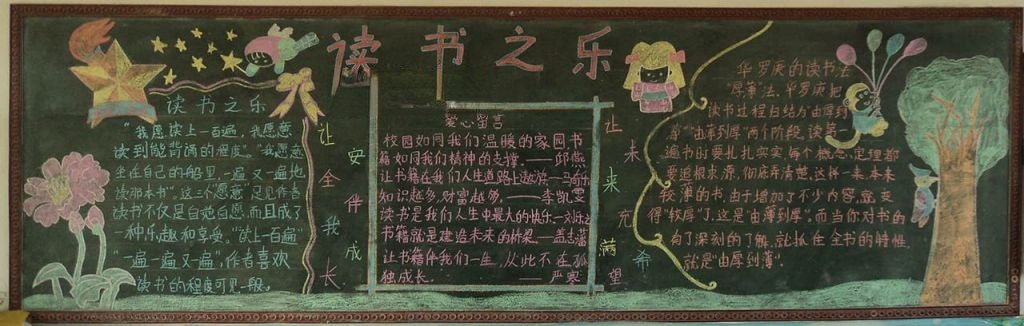 读书之乐
读书之乐
"我愿读上一百遍,我愿意
读到能背诵的程度。""我愿意
坐在自己的船里,一遍又一遍地
读那本书"。这三个"愿意"足见作者
读书不仅是自觉自愿,而且成了
一种乐趣和享受。"读上一百遍"
"一遍一遍又一遍",作者喜欢
读书的程度可见一般。
让安全伴我成长
爱心留言
校园如同我们温暖的家园书
籍如同我们精神的支撑。——邱燕
让书籍在我们人生道路上遨游——马
知识越多,财富越多。——李凯雯
读书是我们人生中最大的快乐—刘
书籍就是建造未来的桥梁—盖志
让书籍伴我们一生,从此不在孤
独成长。——严寒
让未来充满希望
华罗庚的读书法
"厚薄"法,华罗庚把
读书过程归结为"由厚到
薄""由薄到厚"两个阶段,读第一
遍书时要扎扎实实,每个概念、定理都
要追根求源,彻底弄清楚。这样一来,本来
较薄的书,由于增加了不少内容,就变
得"较厚"了,这是"由薄到厚"。而当你对书的
有了深刻的了解,就抓住全书的特性
就是"由厚到薄"。